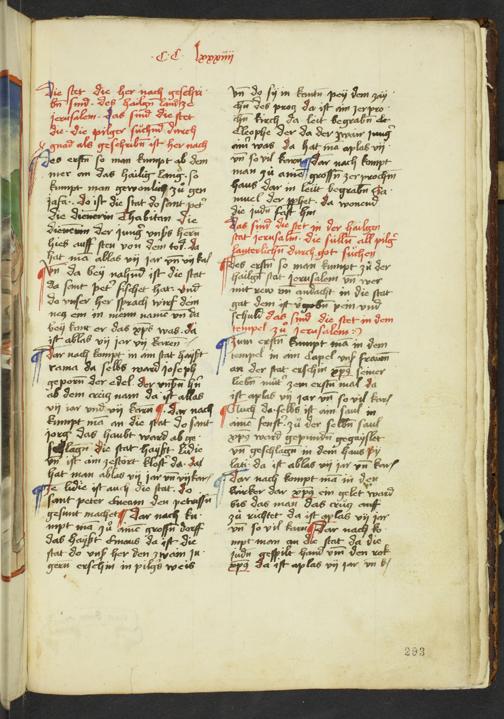 CC lxxxiiii
Die stet die her nach geschri
bn sind des heilign landtz
jerusalem das sind die stet
die die pilger suchnd durch
gnad als geschribn ist her nach
Des erstn so man kumpt ab dem
mer an das hailig lang so
kumpt man gewonlich zu gen
jaffa do ist die stat do sant pet
die dienerin Thabitam die
dienerin der jung vnsß hern
hies auff sten von dem tod da
hat ma ablas vii jar vn vii kar
Vn da bey nahend ist die stat
da sant pet fischet hat vnd
do vnser her sprach wirf dem
neg ein in meim name vn da
bey kant er das xps was da
ist ablas vii jar vii karen
Dar nach kompt in am stat haist
rama da selbs ward joseph
geporn der edel der vnsn hn
ab dem crutz nam da ist ablas
vii jar vnd vii karn Dar nach
kumpt ma an die stat do sant
jorg das haubt ward ab ge
schlagn die stat haist lidie
vn ist am zestört klost da da
hat man ablas vii jar vn vii kar
Ze lidie ist auch die stat do
sant peter eneam den petrissn
gesunt machet Dar nach ku
mpt ma zu aine grossn dorff
das haist emaus da ist die
stat do vnß her den zwain ju
gern erschin in pilgs weis
vn do sy in kantn pey dem zai
chn des protz da ist am zerpro
chn kirch da leit begrabn de
Cleophe der da der zwair jung
ainr was da hat ma aplas vii
vn so vil karen Dar nach kumpt
man zu aine grossn zerprochn
haus dar in leit begrabn sa
muel der pphet da wonend
die judn fast hin
Das sind die stet in der heilign
stat jerusalem die sulln all pilg
lauterlichn durch got suchen
Des erstn so man kumpt zu der
hailign stat jerusalem vn wer
mit rew vn andacht in die stat
gat dem ist vgebn pein vnd
schuld das sind die stet in dem
tempel zu jerusalem
Zum erstn kumpt ma in dem
tempel in am Capel vnß frawen
an der stat erschin xps seiner
liebn mutr zem erstn mal da
ist aplas vii jar vn so vil kar
Auch da selbs ist am saul in
aime fenstr zu der selbn saul
xps ward gepundn gegaislet
vn geschlagn in dem haus py
lati da ist ablas vii jar vn kar
Dar nach kumpt ma in den
kärker dar xps ein gelet ward
bis das man das crutz auff
zu richtet da ist aplas vii jar
vn so vil karn Dar nach ko
mpt man an die stat da die
judn gespilt hand vm den rok
xps da ist aplas vii jar vn k
293